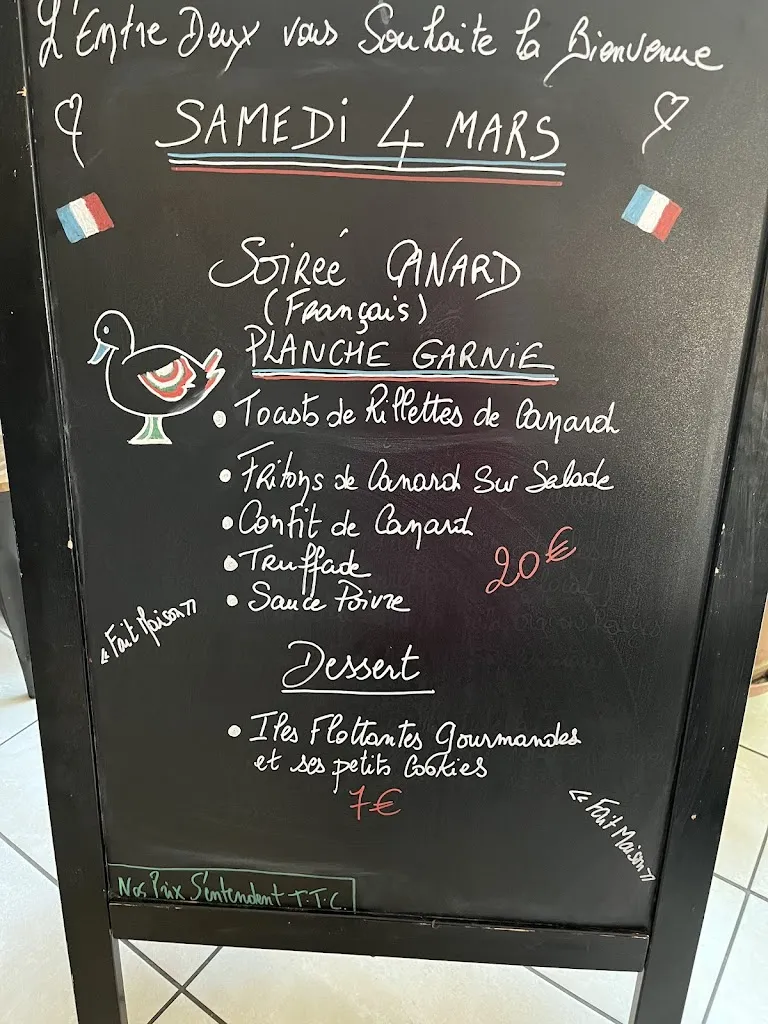 L'Entre Deux vous Souhaite la Bienvenue
SAMEDI 4 MARS
Soireé CANARD
(Français)
PLANCHE GARNIE
• Toasts de Rillettes de Canard
• Fritons de Canard Sur Salade
• Confit de Canard
• Truffade
20€
• Sauce Poivre
"Fait Maison"
Dessert
• Iles Flottantes Gourmandes
et ses petits Cookies
7€
"Fait Maison"
Nos Prix S'entendent T.T.C.